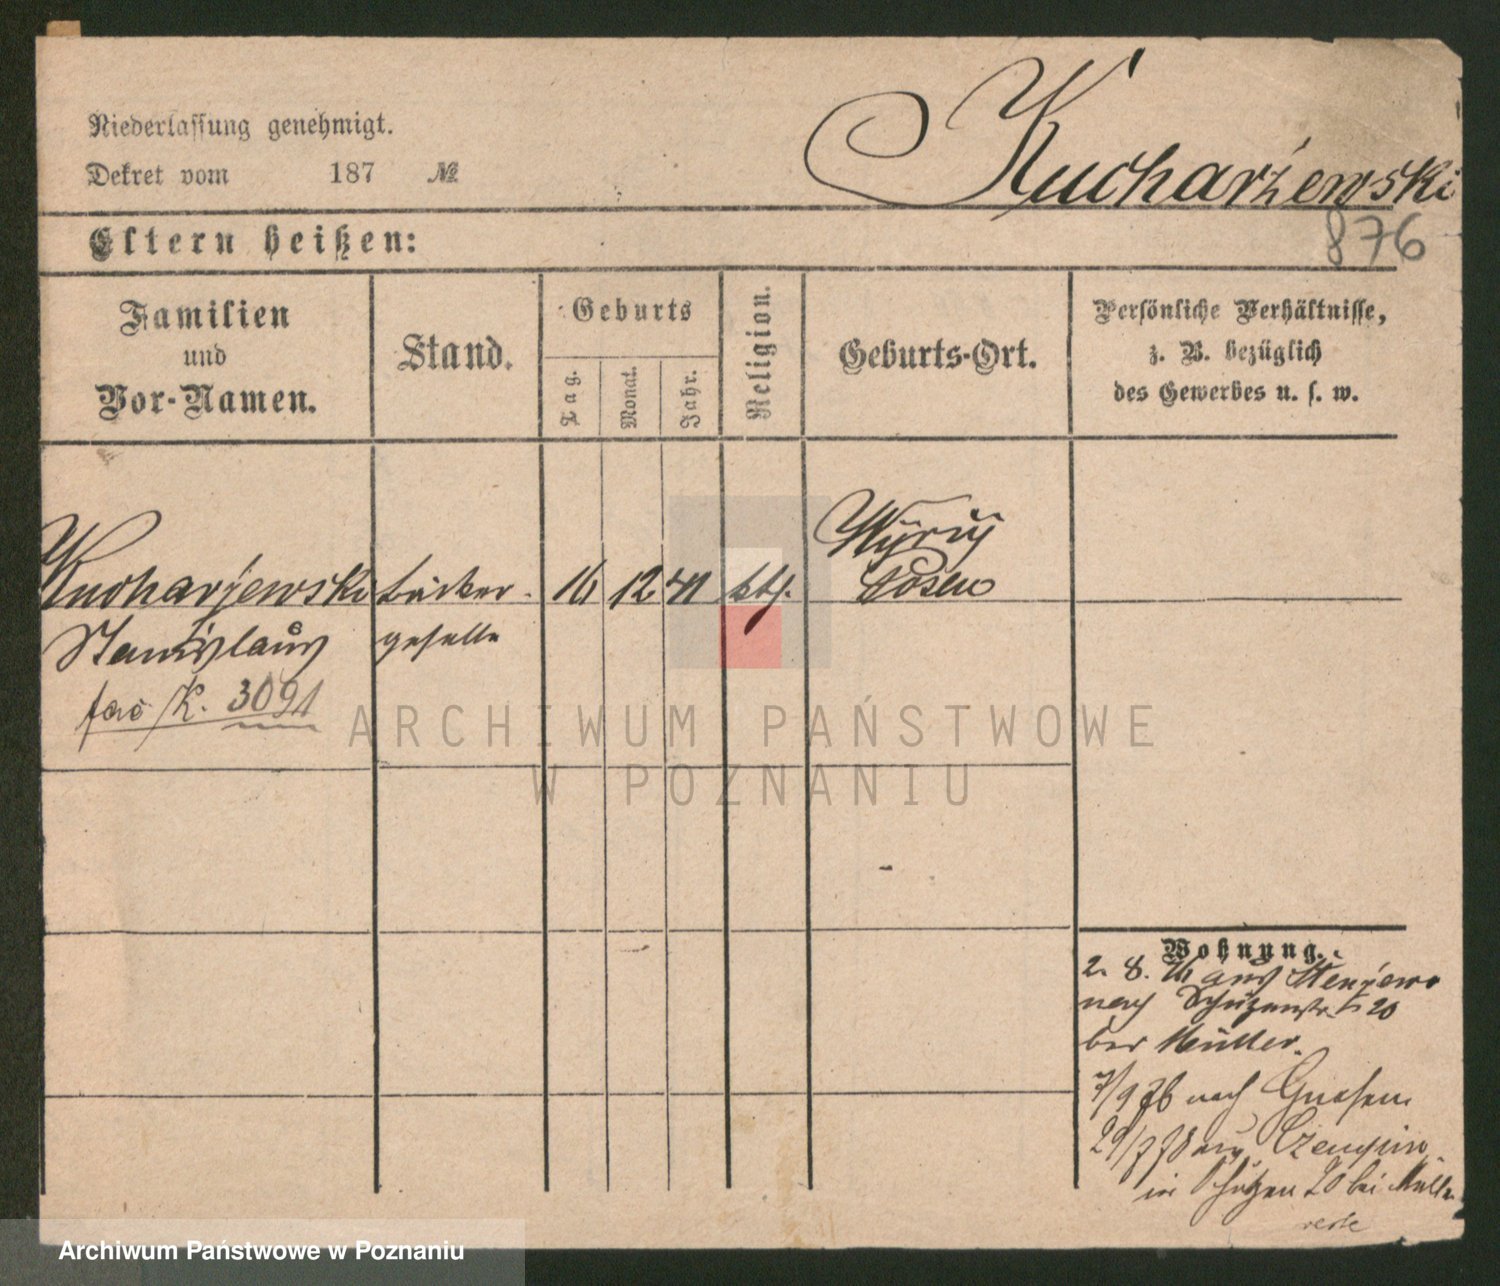 Niederlassung genehmigt.
Dekret vom 187 №
Kucharżewski
876
Eltern heißen:
Familien
und
Vor-Namen.
Stand.
Geburts
Tag.
Monat.
Jahr.
Religion.
Geburts-Ort.
Persönliche Verhältnisse,
z. B. bezüglich
des Gewerbes u. s. w.
Kucharzewski
Stanislaus
K. 3091
Bäcker-
geselle
16
12
41
kth.
Posen
Wohnung.
2. 8. 76 aus
nach Schützenstr. 20
bei Müller.
7/9 76 nach Gnesen
29/7 78 aus Czempin
in Schützen 20 bei Müller
ARCHIWUM PAŃSTWOWE
W POZNANIU
Archiwum Państwowe w Poznaniu